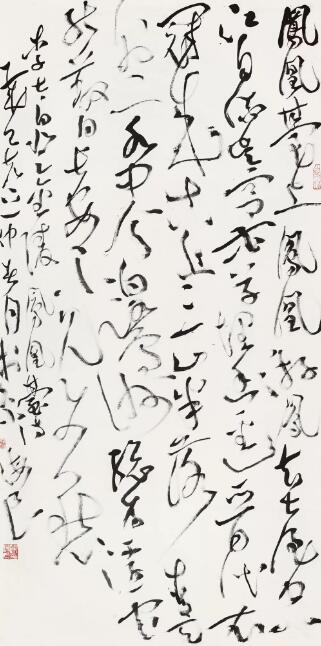 鳳凰臺上鳳凰遊鳳去臺空
江自流吳宮花草埋幽徑晉代衣
冠成古丘三山半落青天
外二水中分白鷺洲總為浮雲
能蔽日長安不見使人愁
李太白登金陵鳳凰臺詩
仲春月於